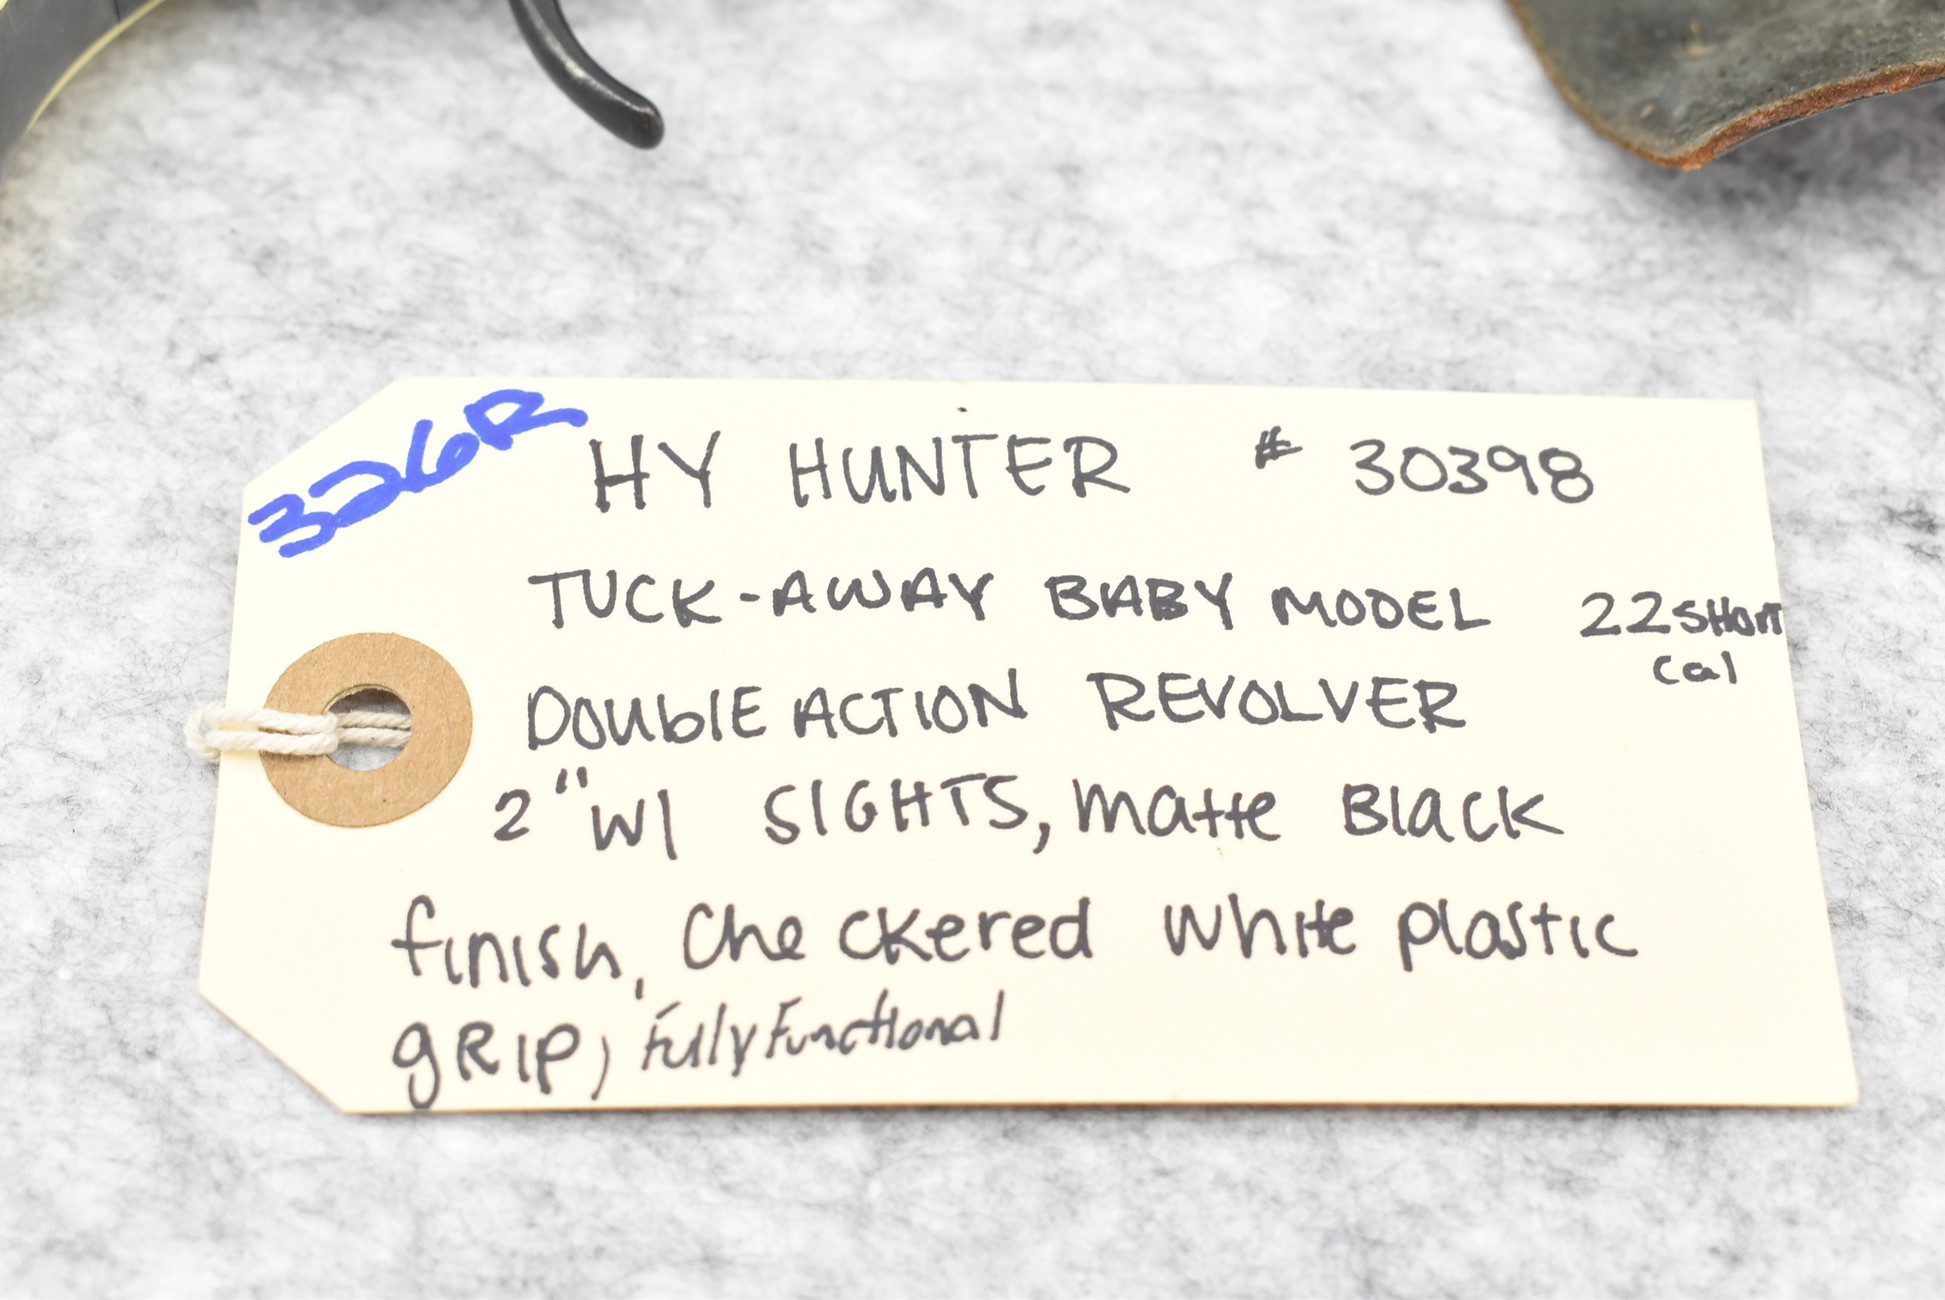 326R
HY HUNTER # 30398
TUCK-AWAY BABY MODEL 22 SHORT
cal
DOUBLE ACTION REVOLVER
2" W/ SIGHTS, matte Black
finish, Checkered white plastic
gRIP, Fully Functional